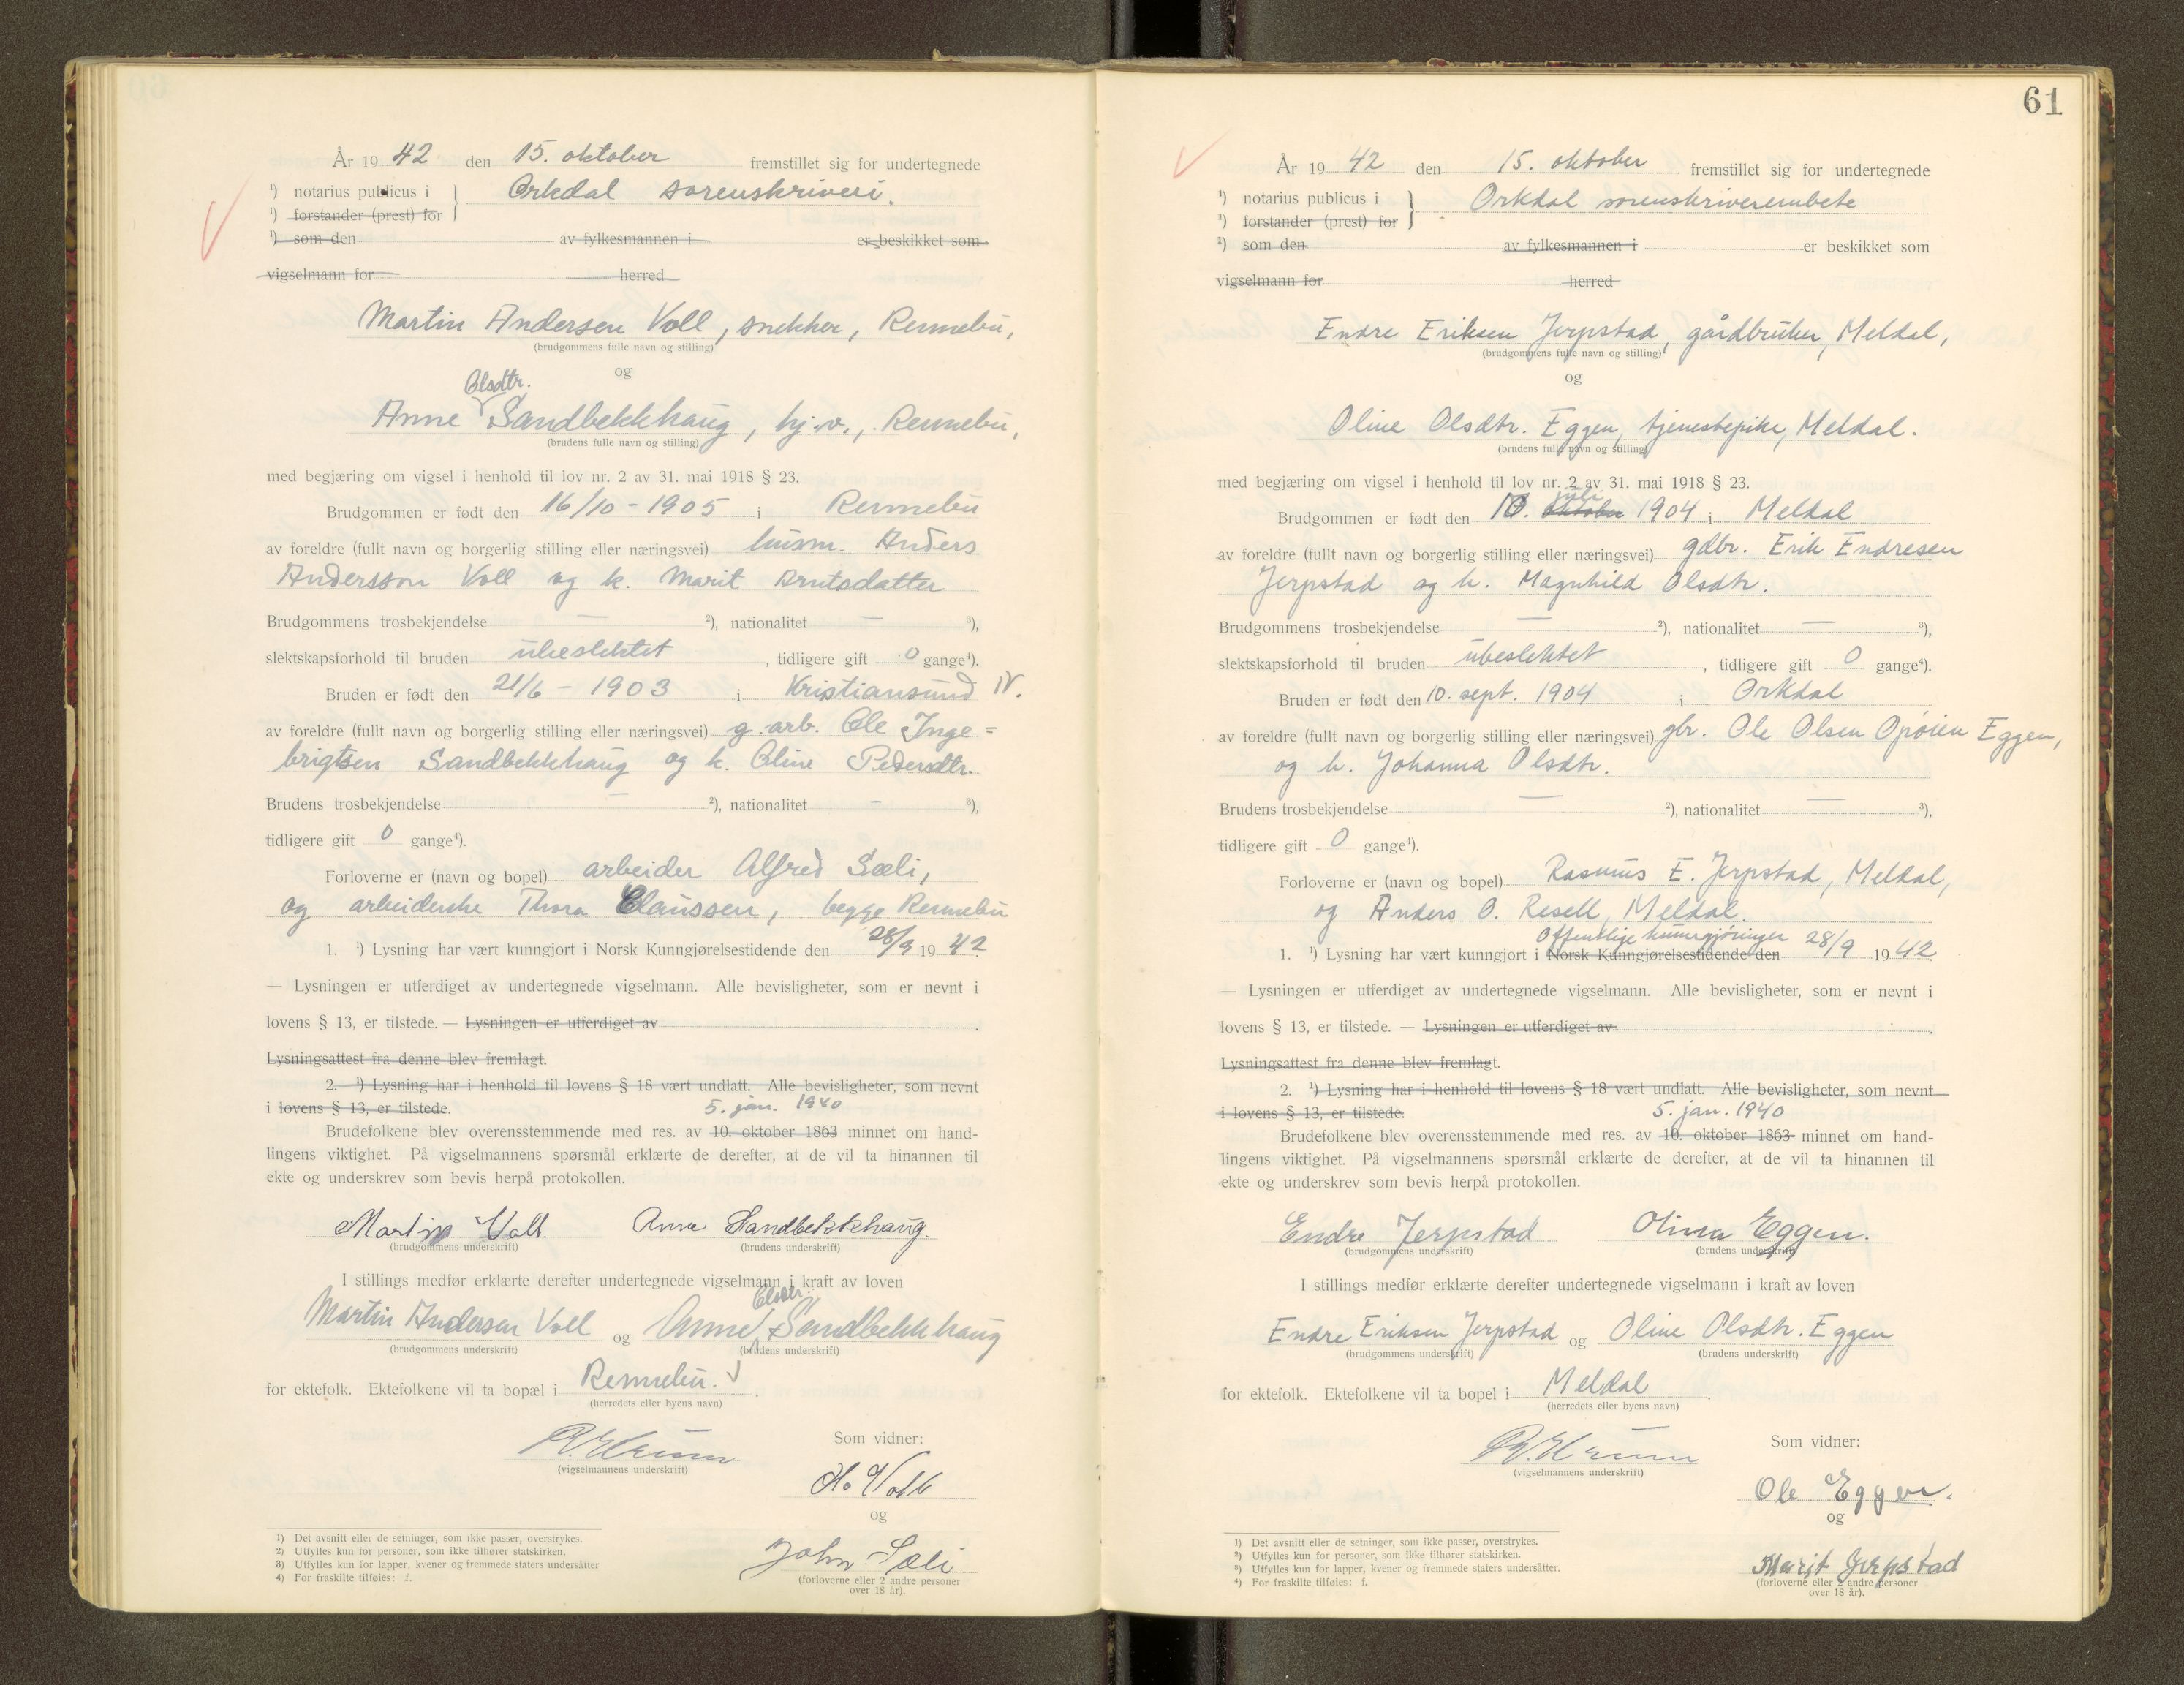 År 19 42 den 15. oktober fremstillet sig for undertegnede
¹) notarius publicus i
Orkdal sorenskriveri.
¹) forstander (prest) for
¹) som den av fylkesmannen i er beskikket som
vigselmann for herred
Martin Andersen Voll, snekker, Rennebu,
(brudgommens fulle navn og stilling)
og
Olsdtr.
Anne Sandbekkhaug, hj.v., Rennebu,
(brudens fulle navn og stilling)
med begjæring om vigsel i henhold til lov nr. 2 av 31. mai 1918 § 23.
Brudgommen er født den 16/10 - 1905 i Rennebu
av foreldre (fullt navn og borgerlig stilling eller næringsvei) husm. Anders
Andersson Voll og k. Marit Arntsdatter
Brudgommens trosbekjendelse — ²), nationalitet — ³),
slektskapsforhold til bruden ubeslektet, tidligere gift 0 gange⁴).
Bruden er født den 21/6 - 1903 i Kristiansund N.
av foreldre (fullt navn og borgerlig stilling eller næringsvei) g.arb. Ole Inge=
brigtsen Sandbekkhaug og k. Oline Pedersdtr.
Brudens trosbekjendelse — ²), nationalitet - ³),
tidligere gift 0 gange⁴).
Forloverne er (navn og bopel) arbeider Alfred Sæli,
og arbeiderske Thora Claussen, begge Rennebu
1. ¹) Lysning har vært kunngjort i Norsk Kunngjørelsestidende den 28/9 19 42
— Lysningen er utferdiget av undertegnede vigselmann. Alle bevisligheter, som er nevnt i
lovens § 13, er tilstede. — Lysningen er utferdiget av .
Lysningsattest fra denne blev fremlagt.
2. ¹) Lysning har i henhold til lovens § 18 vært undlatt. Alle bevisligheter, som nevnt
i lovens § 13, er tilstede.
5. jan. 1940
Brudefolkene blev overensstemmende med res. av 10. oktober 1863 minnet om hand-
lingens viktighet. På vigselmannens spørsmål erklærte de derefter, at de vil ta hinannen til
ekte og underskrev som bevis herpå protokollen.
Martin Voll. Anne Sandbekkhaug.
(brudgommens underskrift) (brudens underskrift)
I stillings medfør erklærte derefter undertegnede vigselmann i kraft av loven
Olsdtr.
Martin Andersen Voll og Anne Sandbekkhaug
(brudgommens underskrift) (brudens underskrift)
for ektefolk. Ektefolkene vil ta bopæl i Rennebu.
(herredets eller byens navn)
Som vidner:
(vigselmannens underskrift)
H. Voll
og
John Sæli
(forloverne eller 2 andre personer
over 18 år).
1) Det avsnitt eller de setninger, som ikke passer, overstrykes.
2) Utfylles kun for personer, som ikke tilhører statskirken.
3) Utfylles kun for lapper, kvener og fremmede staters undersåtter
4) For fraskilte tilføies: f.
61
År 19 42 den 15. oktober fremstillet sig for undertegnede
¹) notarius publicus i
Orkdal sorenskriverembete
¹) forstander (prest) for
¹) som den av fylkesmannen i er beskikket som
vigselmann for herred
Endre Eriksen Jerpstad, gårdbruker, Meldal,
(brudgommens fulle navn og stilling)
og
Oline Olsdtr. Eggen, tjenestepike, Meldal.
(brudens fulle navn og stilling)
med begjæring om vigsel i henhold til lov nr. 2 av 31. mai 1918 § 23.
juli
Brudgommen er født den 10. oktober 1904 i Meldal
av foreldre (fullt navn og borgerlig stilling eller næringsvei) gdbr. Erik Endresen
Jerpstad og h. Magnhild Olsdtr.
Brudgommens trosbekjendelse — ²), nationalitet — ³),
slektskapsforhold til bruden ubeslektet, tidligere gift 0 gange⁴).
Bruden er født den 10. sept. 1904 i Orkdal
av foreldre (fullt navn og borgerlig stilling eller næringsvei) gbr. Ole Olsen Opøien Eggen,
og h. Johanna Olsdtr.
Brudens trosbekjendelse — ²), nationalitet — ³),
tidligere gift 0 gange⁴).
Forloverne er (navn og bopel) Rasmus E. Jerpstad, Meldal,
og Anders O. Resell, Meldal.
Offentlige kunngjøringer
1. ¹) Lysning har vært kunngjort i Norsk Kunngjørelsestidende den 28/9 19 42.
— Lysningen er utferdiget av undertegnede vigselmann. Alle bevisligheter, som er nevnt i
lovens § 13, er tilstede. — Lysningen er utferdiget av .
Lysningsattest fra denne blev fremlagt.
2. ¹) Lysning har i henhold til lovens § 18 vært undlatt. Alle bevisligheter, som nevnt
i lovens § 13, er tilstede.
5. jan. 1940
Brudefolkene blev overensstemmende med res. av 10. oktober 1863 minnet om hand-
lingens viktighet. På vigselmannens spørsmål erklærte de derefter, at de vil ta hinannen til
ekte og underskrev som bevis herpå protokollen.
Endre Jerpstad Olina Eggen.
(brudgommens underskrift) (brudens underskrift)
I stillings medfør erklærte derefter undertegnede vigselmann i kraft av loven
Endre Eriksen Jerpstad og Oline Olsdtr. Eggen
(brudgommens underskrift) (brudens underskrift)
for ektefolk. Ektefolkene vil ta bopel i Meldal.
(herredets eller byens navn)
Som vidner:
(vigselmannens underskrift)
Ole Eggen.
og
Marit Jerpstad
(forloverne eller 2 andre personer
over 18 år).
1) Det avsnitt eller de setninger, som ikke passer, overstrykes.
2) Utfylles kun for personer, som ikke tilhører statskirken.
3) Utfylles kun for lapper, kvener og fremmede staters undersåtter.
4) For fraskilte tilføies: f.